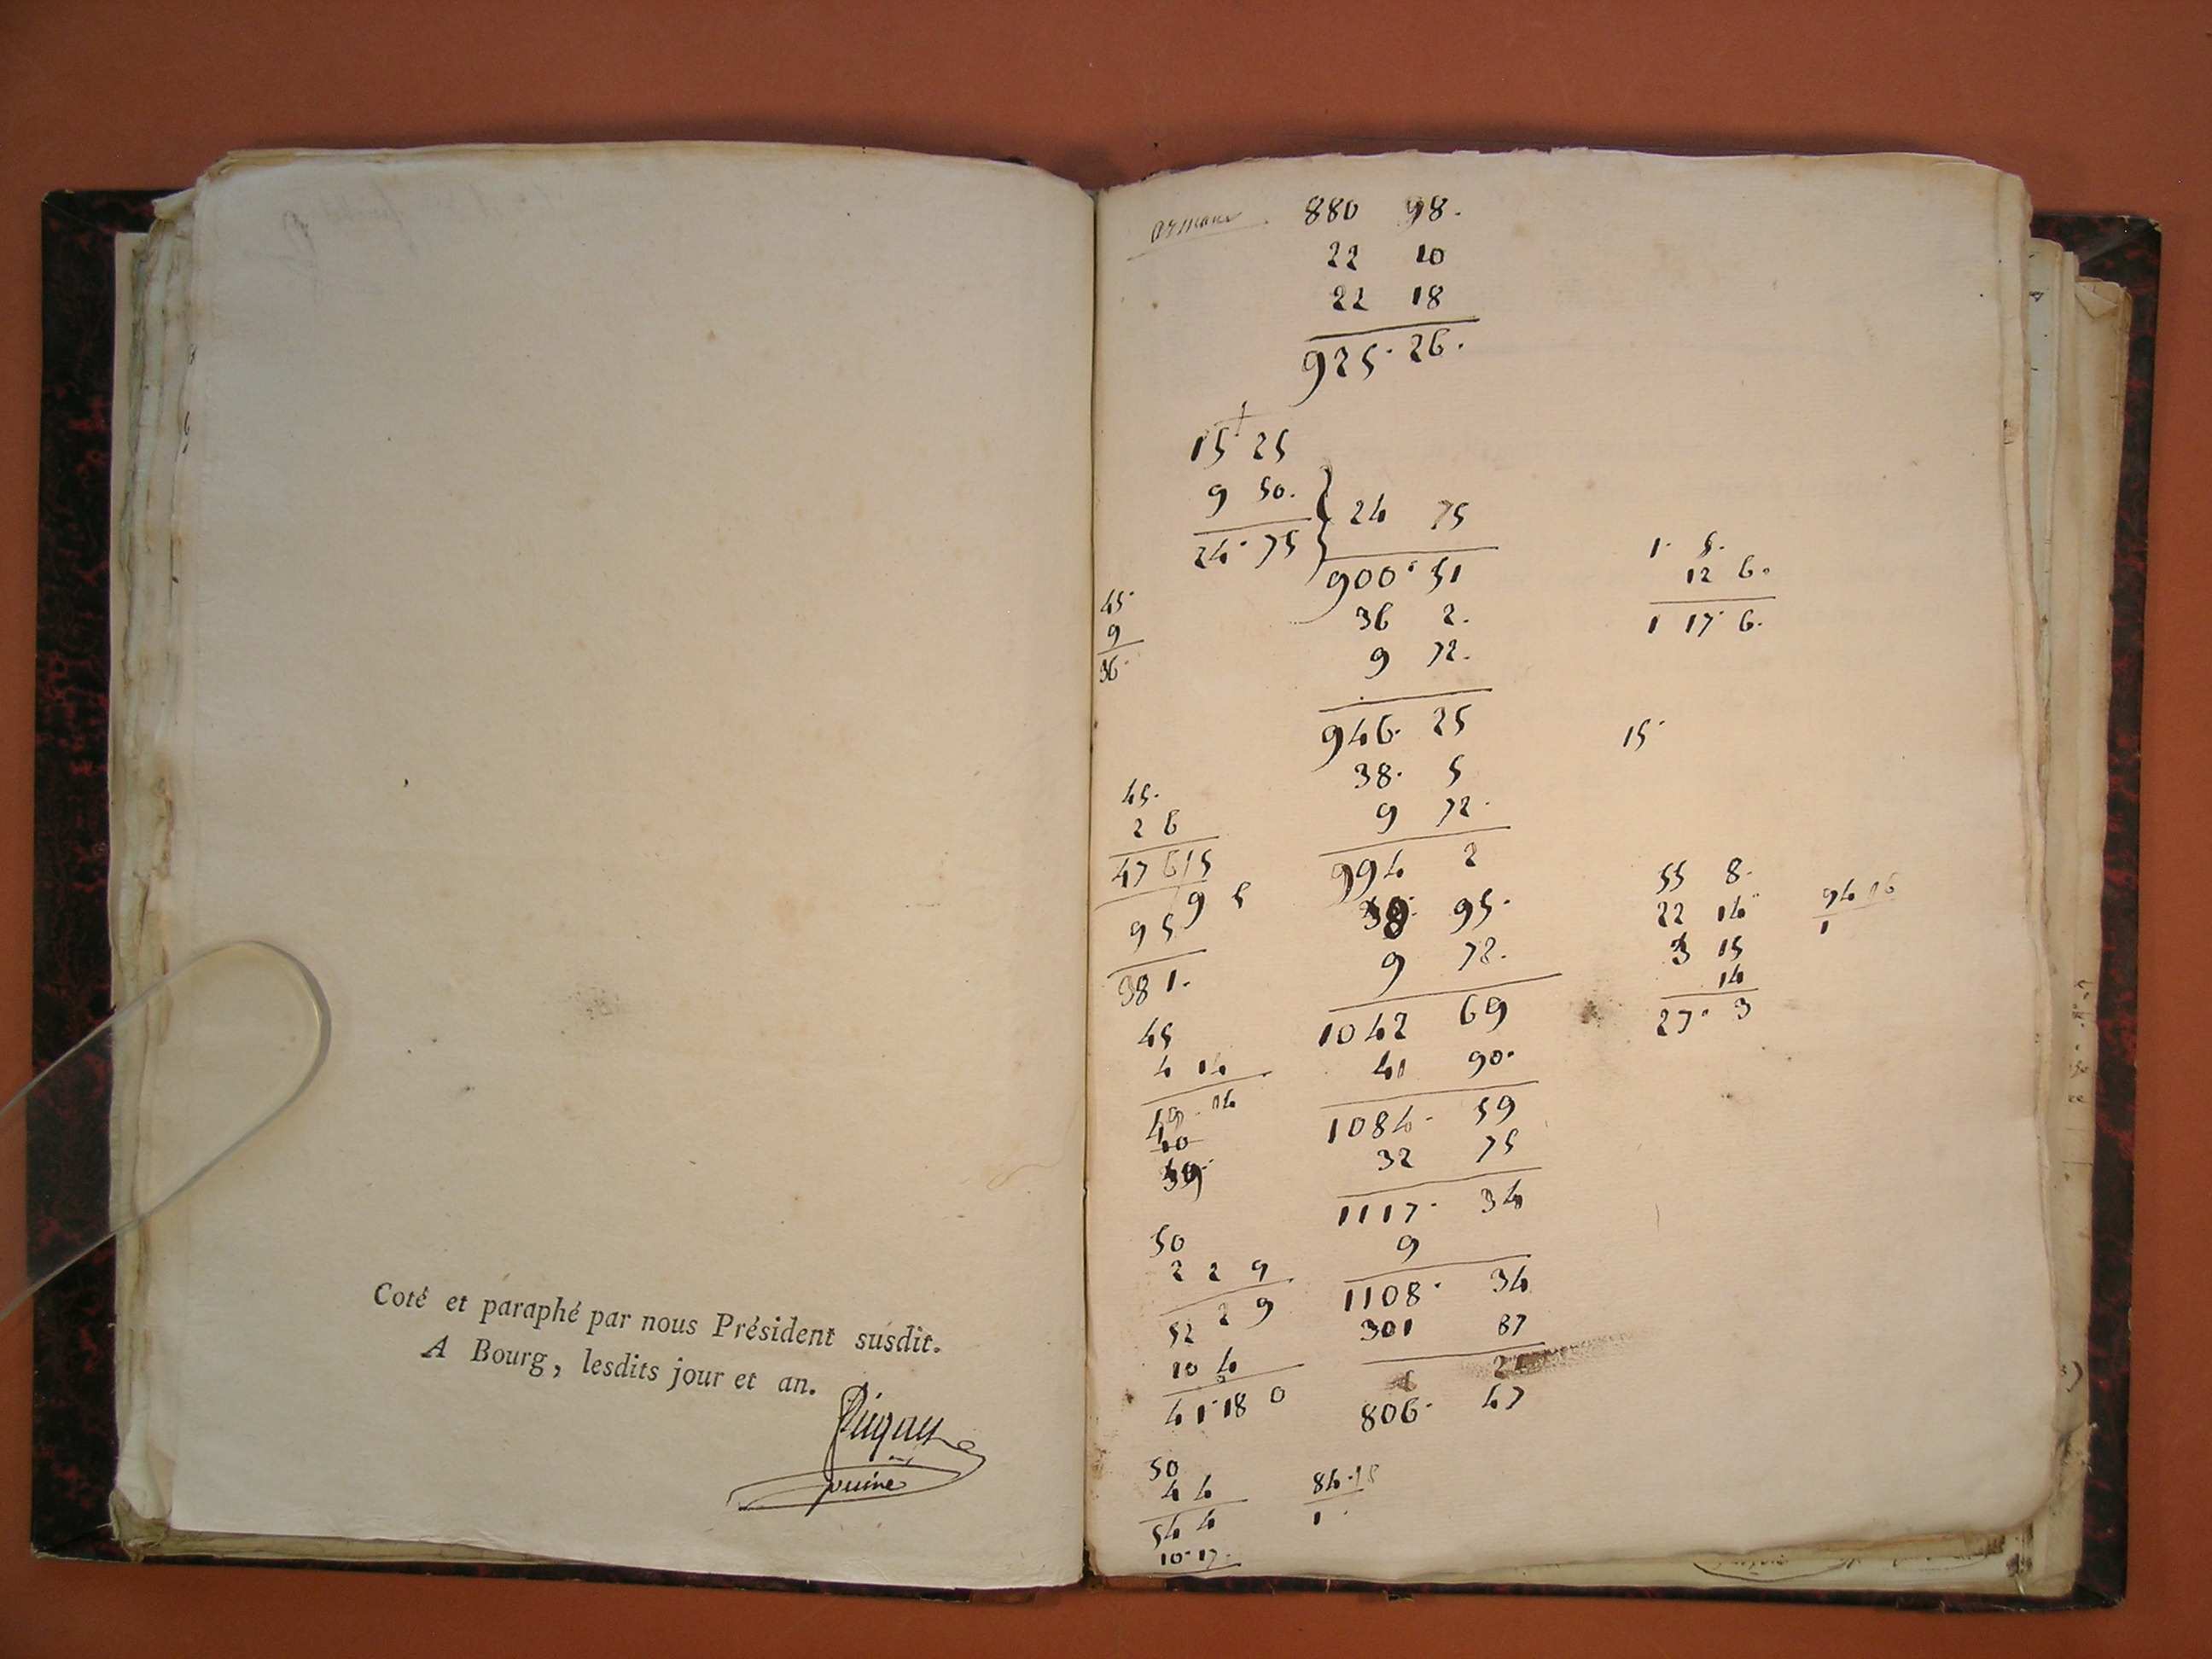 Coté et paraphé par nous Président susdit.
A Bourg, lesdits jour et an.
puine
880 98.
22 10
22 18
925. 26.
15 25
9 50.
24. 75
24 75
900. 51
36 2.
9 72.
946. 25
38. 5
9 72.
994 2
39. 95.
9 72.
1042 69
41 90.
1084. 59
32 75
1117. 34
9
1108. 34
301 87
21
806. 47
45.
9
36.
45.
2 6
47 6 15
9 5
9 5
38 1.
45
4 14
49. 14
10
39.
50
2 2 9
52 2 9
10 4
41. 18 0
50
4 4
54 4
10. 17.
84. 15
1
1. 5.
12 6.
1 17. 6.
15.
55 8.
22 14
3 15
14
27. 3
94 16
1